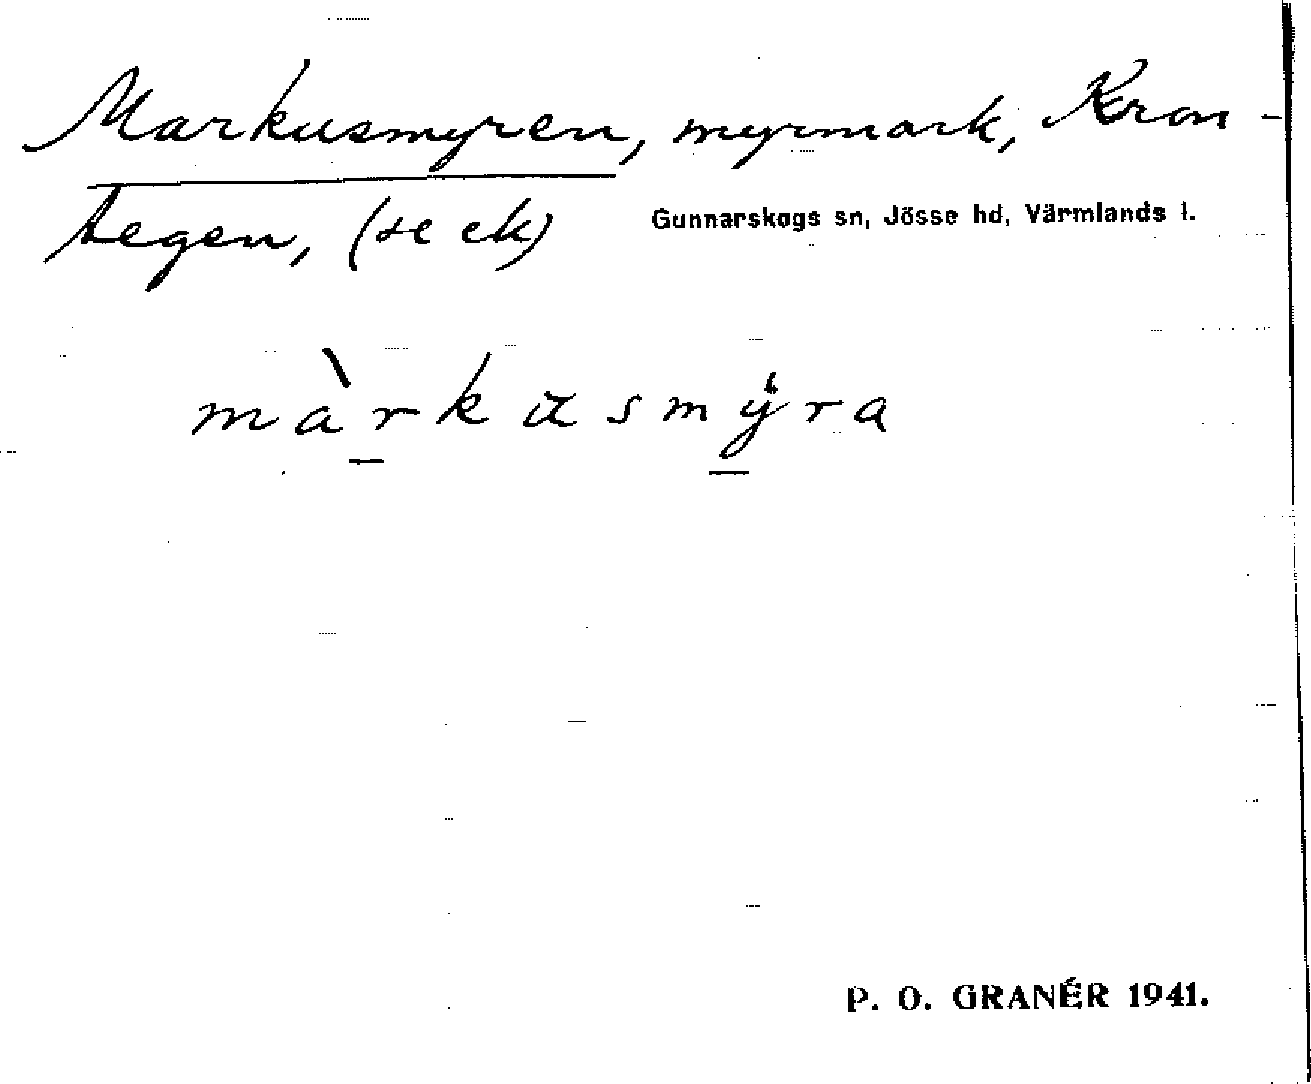 Markusmyren, myrmark, Kron-
tegen, (se ek) Gunnarskogs sn, Jösse hd, Värmlands l.
màrkusmÿra
P. O. GRANÉR 1941.